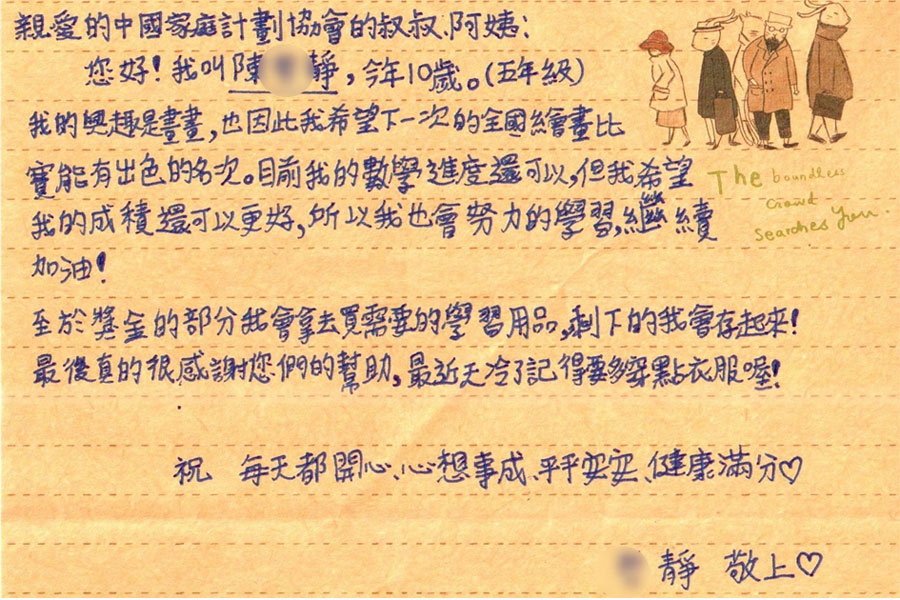 親愛的中國家庭計劃協會的叔叔、阿姨:
您好!我叫陳靜,今年10歲。(五年級)
我的興趣是畫畫,也因此我希望下一次的全國繪畫比
賽能有出色的名次。目前我的數學進度還可以,但我希望
我的成積還可以更好,所以我也會努力的學習,繼續
加油!
至於獎金的部分我會拿去買需要的學習用品,剩下的我會存起來!
最後真的很感謝您們的幫助,最近天冷了記得要多穿點衣服喔!
祝 每天都開心、心想事成、平平安安、健康滿分♡
靜 敬上♡
The boundless
crowd
searches you.